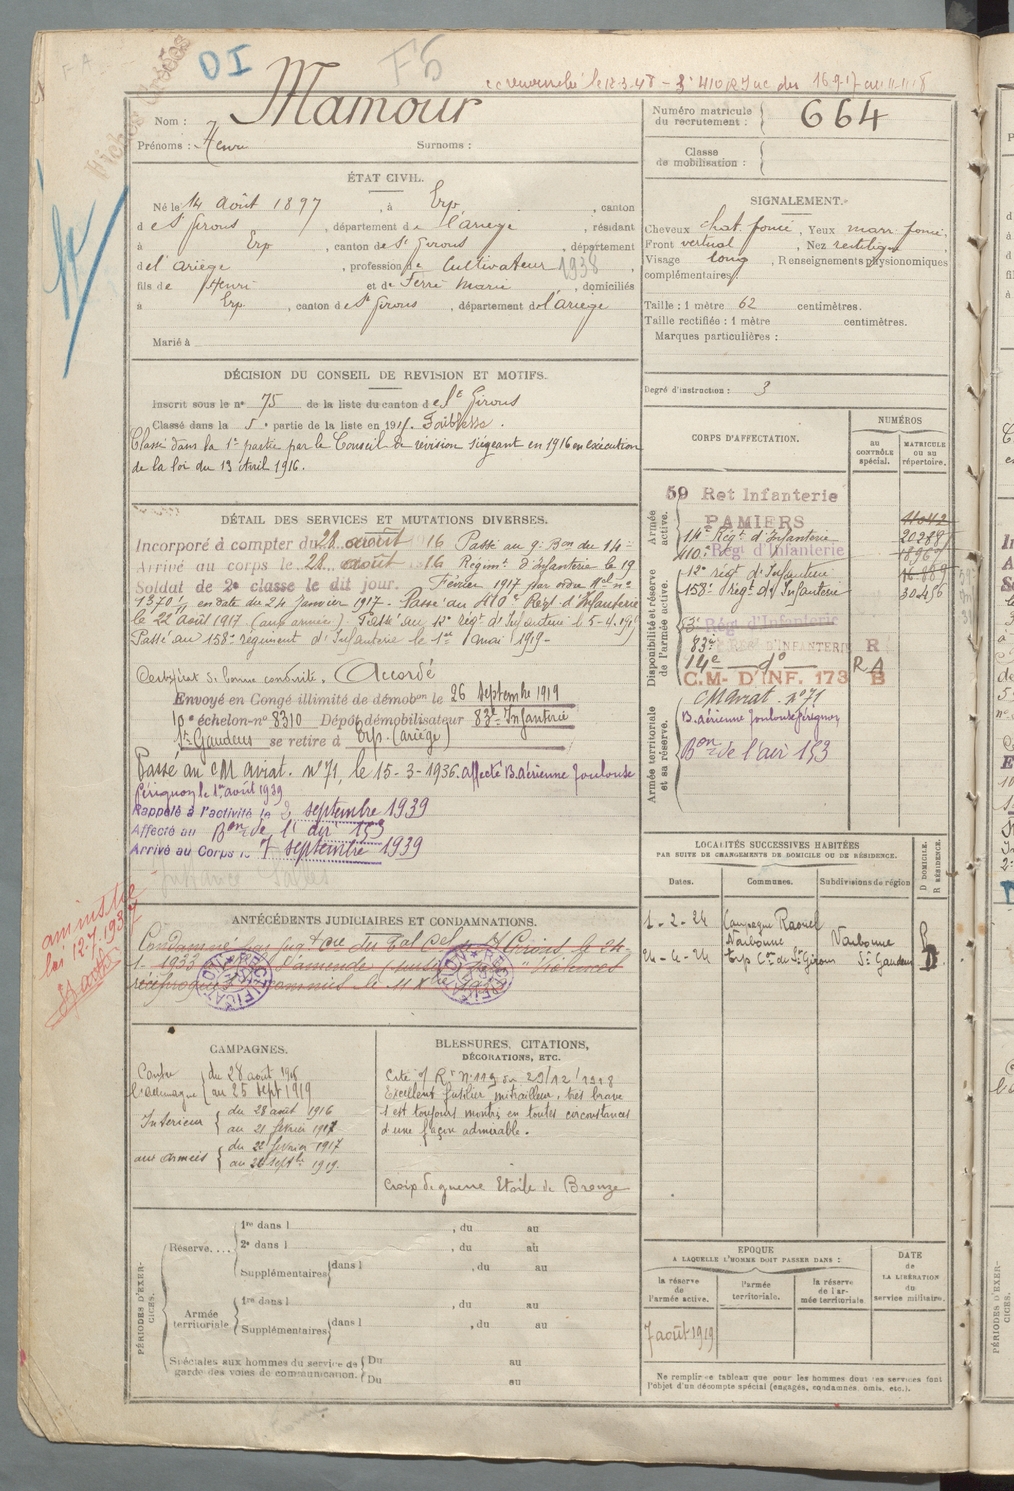 DI
F5
Fiches croisées
cc revenche le 12-3-48 - S: 410 R Inc du 16-9-17 au 11-11-18
Nom : Mamour
Prénoms : Henri Surnoms :
Numéro matricule du recrutement : 664
Classe de mobilisation :
ÉTAT CIVIL.
Né le 14 août 1897, à Erp, canton
de St Girons, département de l'ariège, résidant
à Erp, canton de St Girons, département
de l'ariège, profession de Cultivateur 1938,
fils de Henri et de Ferré Marie, domiciliés
à Erp, canton de St Girons, département de l'ariège
Marié à
SIGNALEMENT.
Cheveux chat. foncé, Yeux marr. foncé,
Front vertical, Nez rectiligne
Visage long, Renseignements physionomiques
complémentaires
Taille : 1 mètre 62 centimètres.
Taille rectifiée : 1 mètre centimètres.
Marques particulières :
Degré d'instruction : 3
DÉCISION DU CONSEIL DE REVISION ET MOTIFS.
Inscrit sous le n° 75 de la liste du canton de St Girons
Classé dans la 5e partie de la liste en 191. Faiblesse.
Classé dans la 1e partie par le Conseil de révision siégeant en 1916 en exécution
de la loi du 13 Avril 1916.
DÉTAIL DES SERVICES ET MUTATIONS DIVERSES.
Incorporé à compter du 28 août 1916 Passé au 9e Bon du 14e
Arrivé au corps le 28 août 1916 Régimt d'infanterie le 19
Soldat de 2e classe le dit jour. Février 1917 par ordre Mel n°
1370/1 en date du 24 janvier 1917. Passé au 410e Régt d'Infanterie
le 22 Août 1917 (aux armées). Passé au 12e régt d'Infanterie le 5-4-19
Passé au 158e régiment d'Infanterie le 1er mai 1919-
Certificat de bonne conduite. Accordé
Envoyé en Congé illimité de démobon le 26 Septembre 1919
10e échelon-n° 8310 Dépôt démobilisateur 83e Infanterie
St Gaudens se retire à Erp. (ariège)
Passé au CM aviat. n° 71, le 15-3-1936. affecté B. aérienne Toulouse
Pérignon le 1er août 1939
Rappelé à l'activité le 2 septembre 1939
Affecté au Bon de l'air 153
Arrivé au Corps le 7 septembre 1939
CORPS D'AFFECTATION.
NUMÉROS
AU CONTRÔLE spécial.
MATRICULE OU AU répertoire.
Armée active.
59 Ret Infanterie
PAMIERS
14e Régt d'Infanterie 20289
410e Régt d'Infanterie 18967
Disponibilité et réserve de l'armée active.
12e régt d'Infanterie
158e Régt d'Infanterie 30456
Régt d'Infanterie
83e REGt D'INFANTERIE R
14e do R A
C.M- D'INF. 173 B
Armée territoriale et sa réserve.
CM Aviat. n° 71
B. aérienne Toulouse Pérignon
Bon de l'air 153
LOCALITÉS SUCCESSIVES HABITÉES
PAR SUITE DE CHANGEMENTS DE DOMICILE OU DE RÉSIDENCE.
Dates. Communes. Subdivisions de région D DOMICILE. R RÉSIDENCE.
1-2-24 Campagne Raouel Narbonne Narbonne
24-4-24 Erp Con de St Girons St Gaudens D
amnistié
loi 12.7.1937
ANTÉCÉDENTS JUDICIAIRES ET CONDAMNATIONS.
Condamné par jugt du Tal Cel de St Girons le 24-
1-1933 d'amende (sursis) pour "Violences
réciproques" commises le 11
RECTIFICATION
RECTIFICATION
CAMPAGNES.
Contre l'allemagne du 28 août 1916
au 25 sept 1919
Intérieur du 28 août 1916
au 21 février 1917
aux armées du 22 février 1917
au 20 septbre 1919.
BLESSURES, CITATIONS,
DÉCORATIONS, ETC.
Cité O/ Rt N° 119 du 29/12/1918
Excellent fusilier mitrailleur, très brave
s'est toujours montré en toutes circonstances
d'une façon admirable.
Croix de guerre Etoile de Bronze
PÉRIODES D'EXERCICES.
Réserve....
1re dans l , du au
2e dans l , du au
Supplémentaires dans l , du au
Armée territoriale
1re dans l , du au
Supplémentaires dans l , du au
Spéciales aux hommes du service de garde des voies de communication. Du au
Du au
EPOQUE
A LAQUELLE L'HOMME DOIT PASSER DANS :
la réserve de l'armée active.
l'armée territoriale.
la réserve de l'armée territoriale
DATE DE LA LIBÉRATION du service militaire.
7 août 1919
Ne remplir ce tableau que pour les hommes dont les services font
l'objet d'un décompte spécial (engagés, condamnés, omis, etc.).